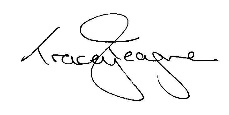 Tracey Teague